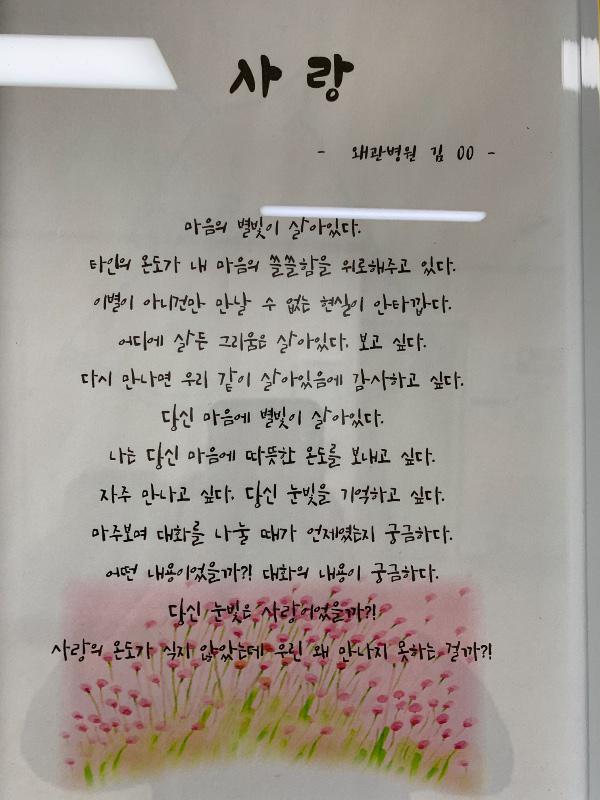 사랑
- 왜관병원 김 00 -
마음의 별빛이 살아있다.
타인의 온도가 내 마음의 쓸쓸함을 위로해주고 있다.
이별이 아니건만 만날 수 없는 현실이 안타깝다.
어디에 살든 그리움은 살아있다. 보고 싶다.
다시 만나면 우리 같이 살아있음에 감사하고 싶다.
당신 마음에 별빛이 살아있다.
나는 당신 마음에 따뜻한 온도를 보내고 싶다.
자주 만나고 싶다. 당신 눈빛을 기억하고 싶다.
마주보며 대화를 나눌 때가 언제였는지 궁금하다.
어떤 내용이었을까?! 대화의 내용이 궁금하다.
당신 눈빛은 사랑이었을까?!
사랑의 온도가 식지 않았는데 우린 왜 만나지 못하는 걸까?!